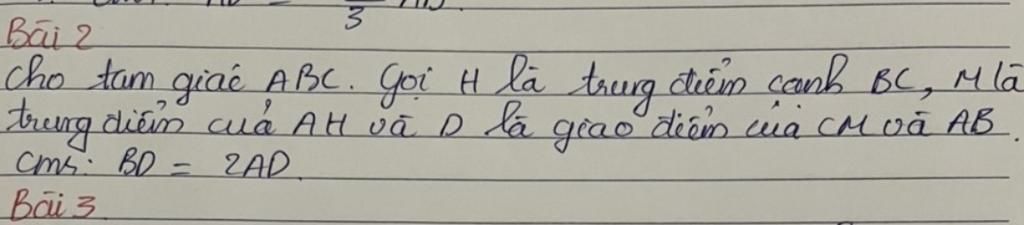 3
Bài 2
Cho tam giác ABC. Gọi H là trung điểm cạnh BC, M là
trung điểm của AH và D là giao điểm của CM và AB.
CMR: BD = 2AD.
Bài 3